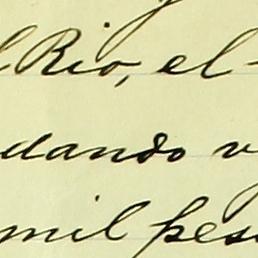 l Rio, el
dando v
mil pes